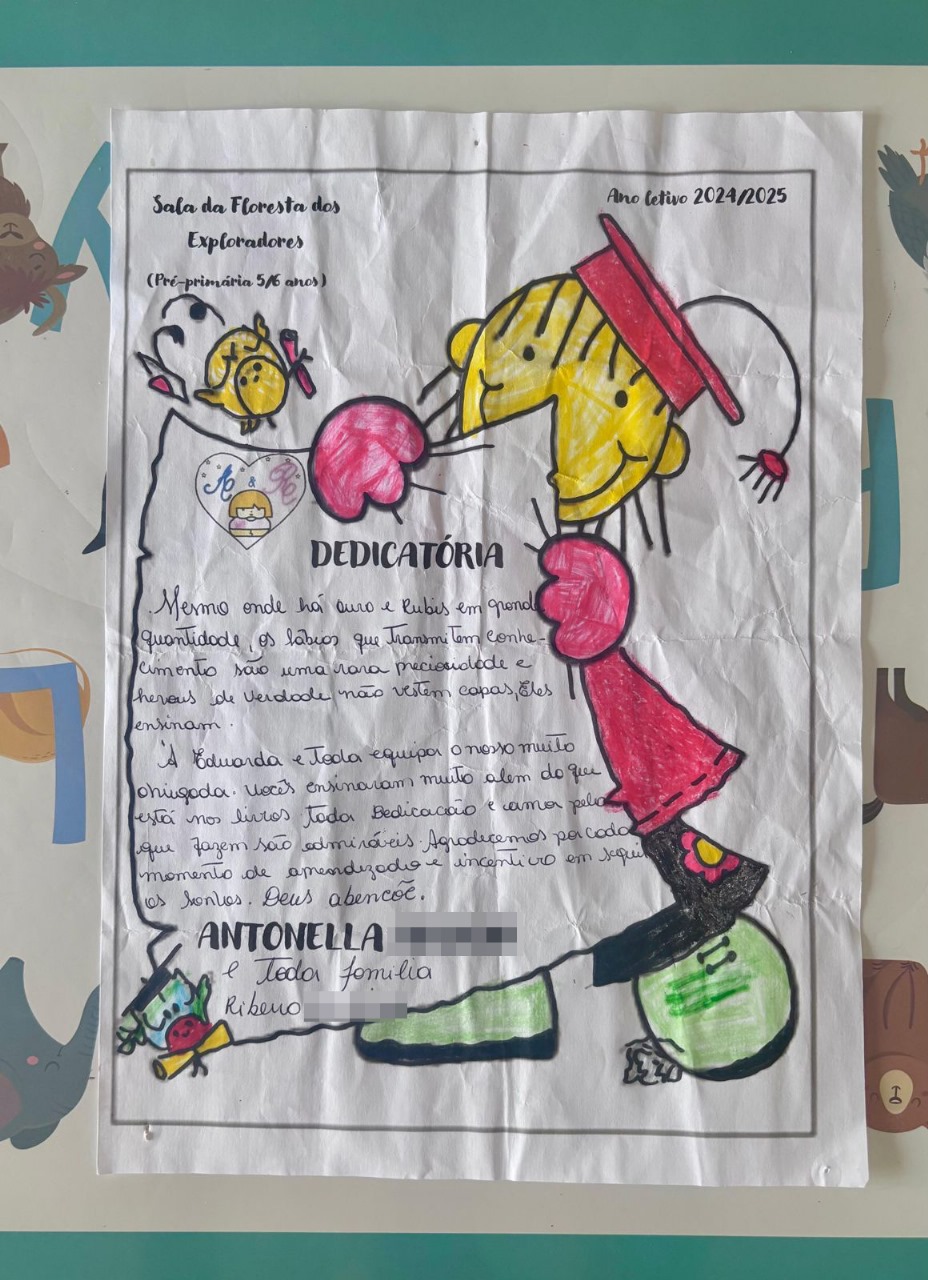 Sala da Floresta dos
Exploradores
(Pré-primária 5/6 anos)
Ano letivo 2024/2025
A & R
DEDICATÓRIA
Mesmo onde há ouro e Rubis em grande
quantidade, os lábios que transmitem conhe-
cimento são uma rara preciosidade e
herous de verdade não vestem capas, Eles
ensinam.
À Eduarda e toda equipa o nosso muito
obrigada. Vocês ensinaram muito alem do que
está nos livros toda Dedicação e amor pelo
que fazem são admiráveis. Agradecemos por cada
momento de aprendizado e incentivo em seguir
os sonhos. Deus abençõe.
ANTONELLA
e Toda familia
Ribeiro